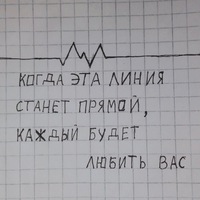 КОГДА ЭТА ЛИНИЯ
СТАНЕТ ПРЯМОЙ,
КАЖДЫЙ БУДЕТ
ЛЮБИТЬ ВАС